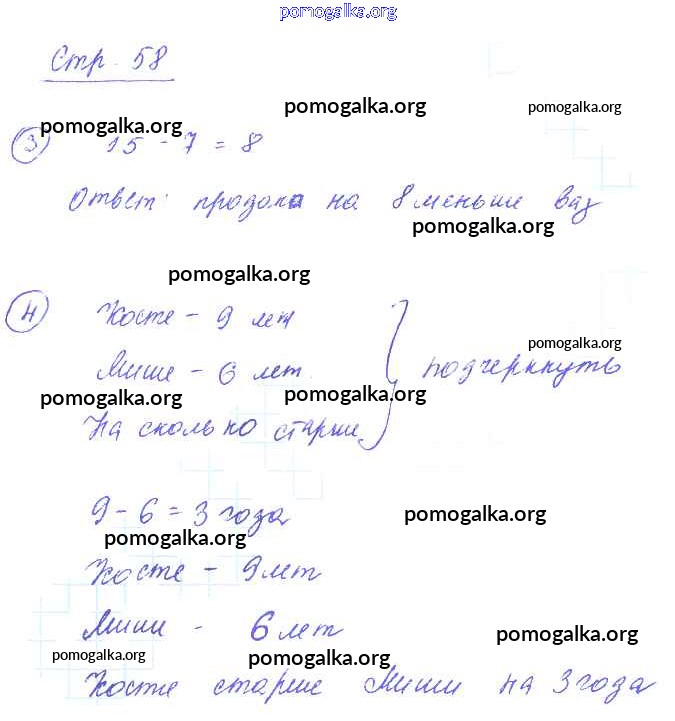 pomogalka.org
Стр. 58
pomogalka.org pomogalka.org
pomogalka.org
③ 15 - 7 = 8
Ответ: продола на 8 меньше ваз
pomogalka.org
pomogalka.org
④ Косте - 9 лет
pomogalka.org
Мише - 6 лет. подчеркнуть
pomogalka.org pomogalka.org
На сколько старше
9 - 6 = 3 года
pomogalka.org
pomogalka.org
Косте - 9 лет
Миши - 6 лет
pomogalka.org
pomogalka.org pomogalka.org
Косте старше Миши на 3 года